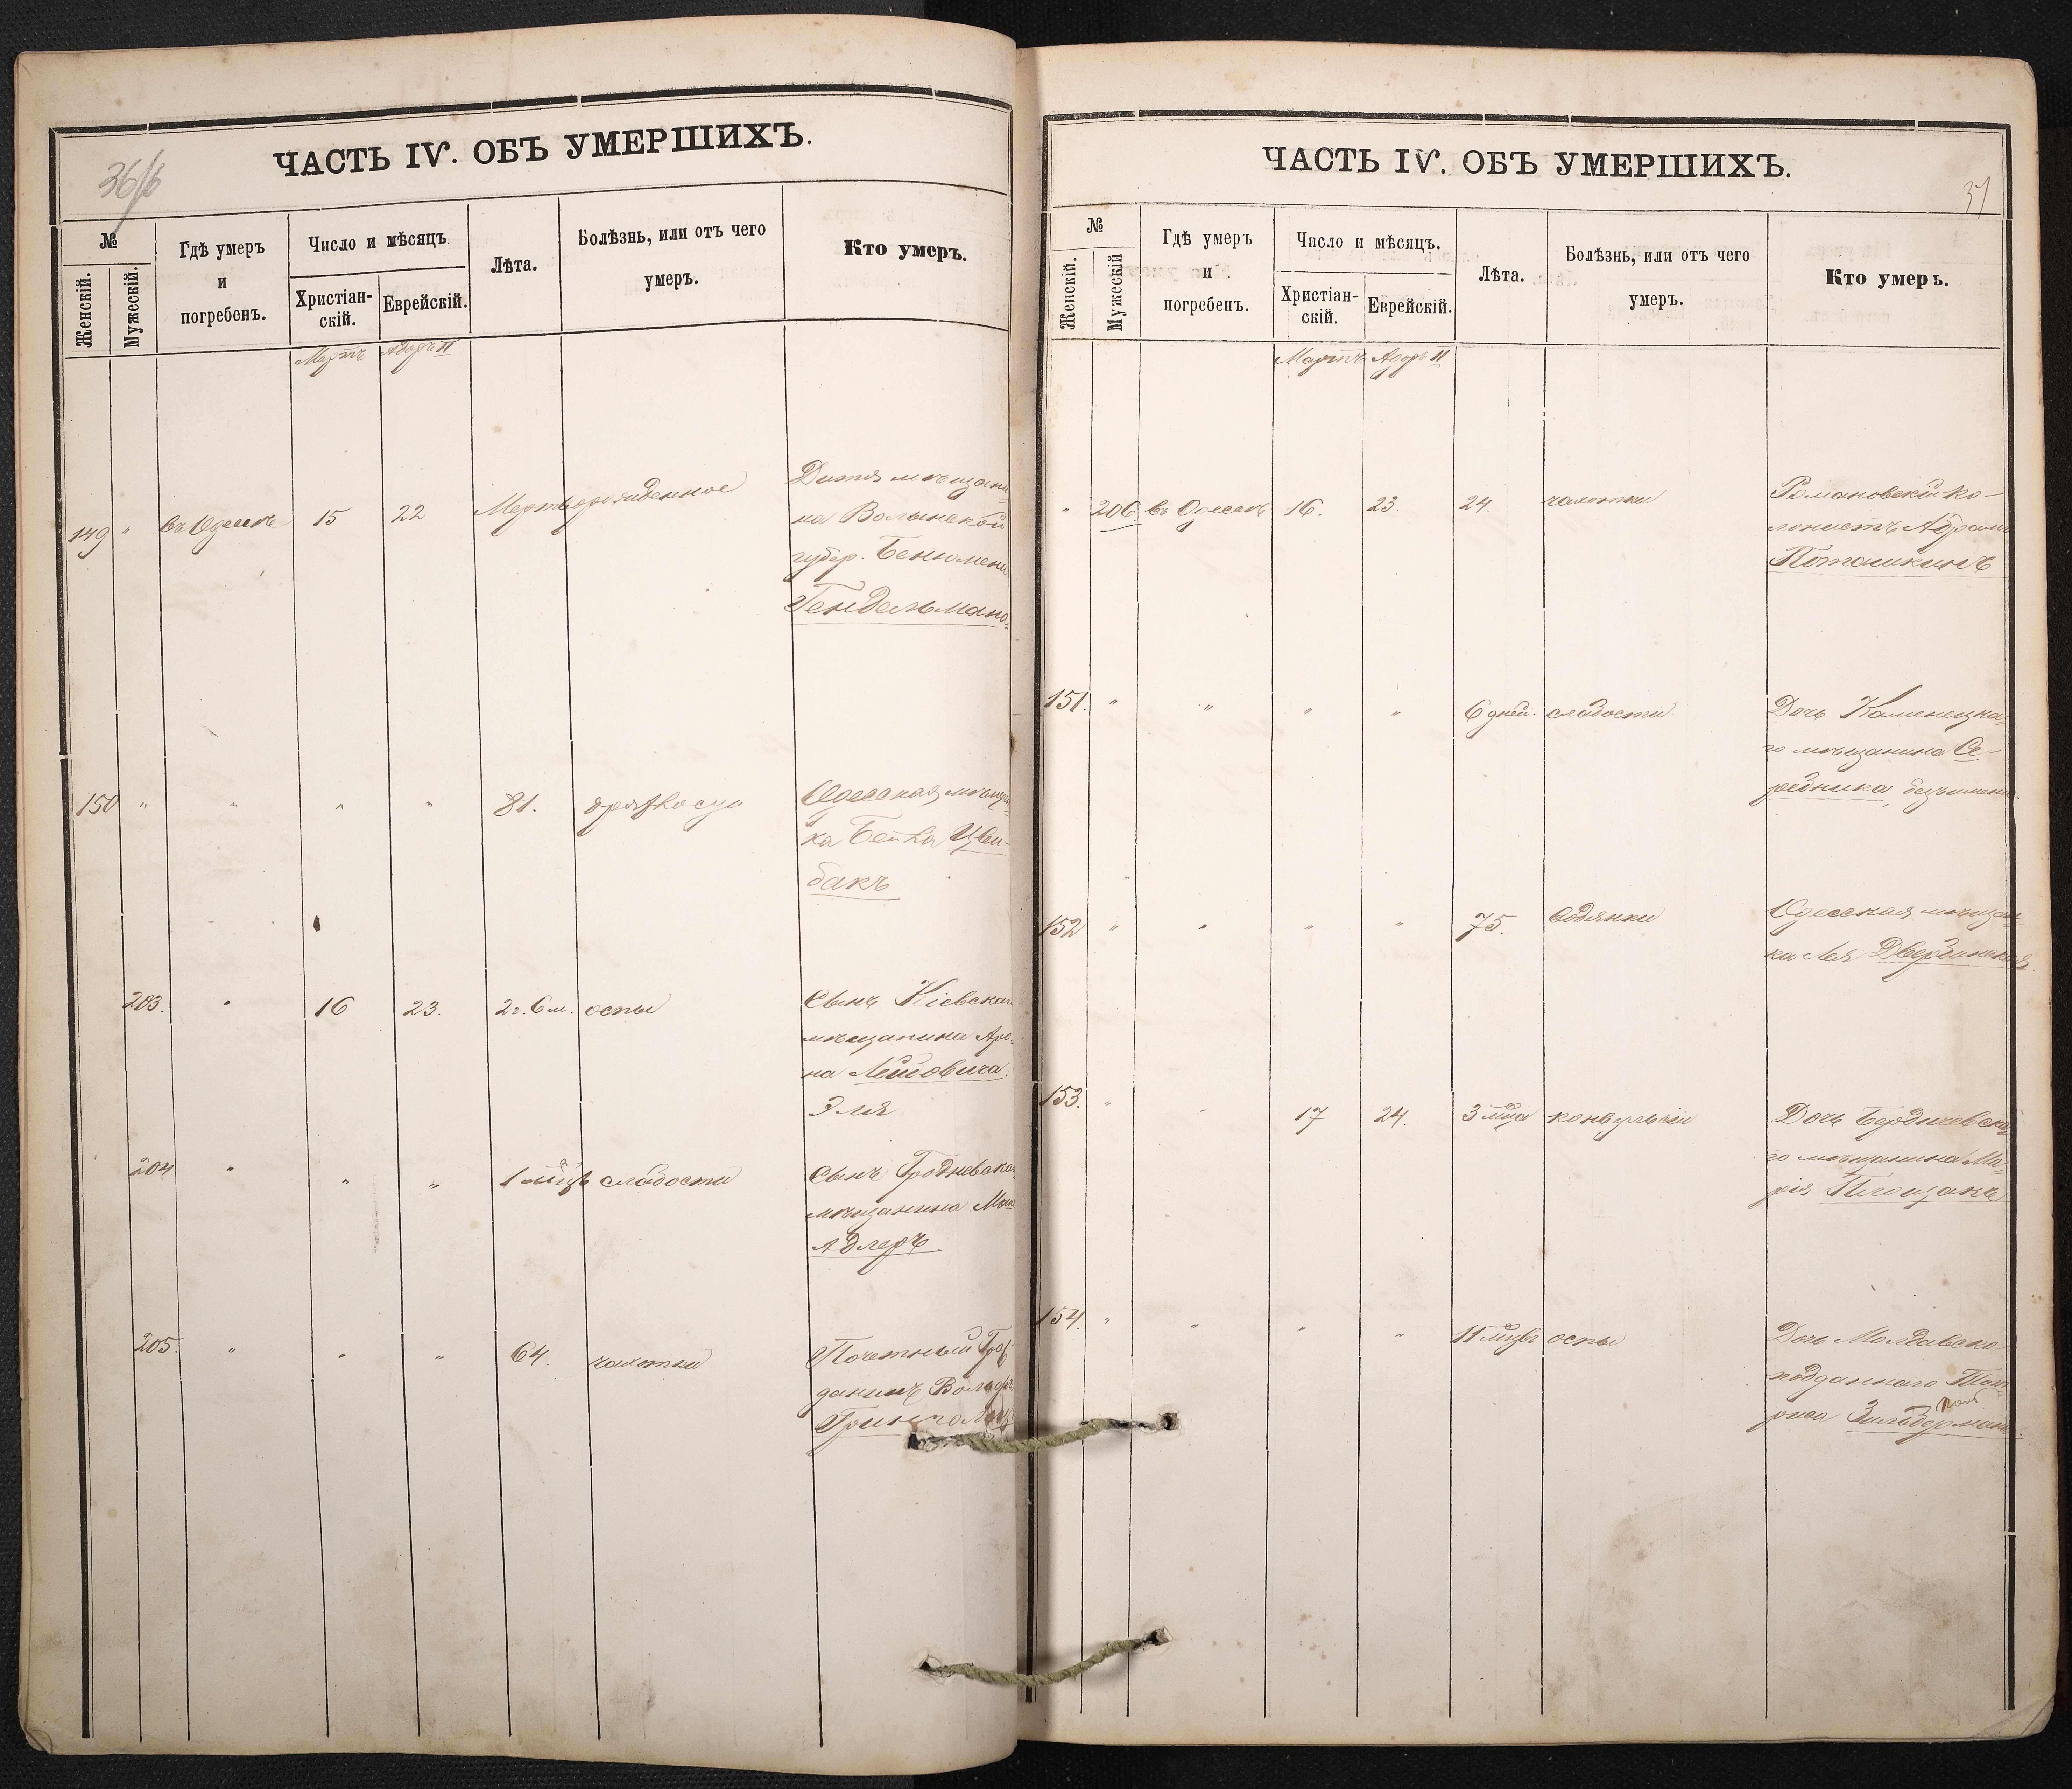 ЧАСТЬ IV. ОБЪ УМЕРШИХЪ.
№
Женскій.
Мужескій.
Гдѣ умеръ
и
погребенъ.
Число и мѣсяцъ
Христіан-
скій.
Еврейскій.
Лѣта.
Болѣзнь, или отъ чего
умеръ.
Кто умеръ.
Мартъ Адаръ II
149 " въ Одессѣ 15 22 Мертворожденное
Дитя мѣщани=
на Волынской
губер. Бенюмена
Гендельмана
150 " " " " 81.
Одесская мѣщан=
ка Бейла Цвей-
бакъ
203. " 16 23. 2г. 6 м. оспы
Сынъ Кіевскаго
мѣщанина Аро=
на Лейбовича
Эля
204 " " " 1 мѣсц слабости
Сынъ Гродневска
мѣщанина
Адлеръ
205. " " " 64. чахотки
Почетный Граж
данинъ Вольфъ
ЧАСТЬ IV. ОБЪ УМЕРШИХЪ.
37
№
Женскій.
Мужескій
Гдѣ умеръ
и
погребенъ.
Число и мѣсяцъ.
Христіан-
скій.
Еврейскій.
Лѣта.
Болѣзнь, или отъ чего
умеръ.
Кто умеръ.
Мартъ Адаръ II
" 206. въ Одессѣ 16. 23. 24. чахотки
Романовскій ко-
лонистъ Абрамъ
Поташкинъ
151. " " " " 6 дней. слабости
Дочь Каменецка=
го мѣщанина Се-
ребника, безъимени
152 " " " " 75. водянки
Одесская мѣщан=
ка Лея
153. " " 17 24. 3 мца конвульсіи
Дочь Бердичевска
го мѣщанина Ма=
рія Площакъ
154. " " " " 11 мцвъ оспы
Дочь Молдавско
подданаго
Зильберманъ